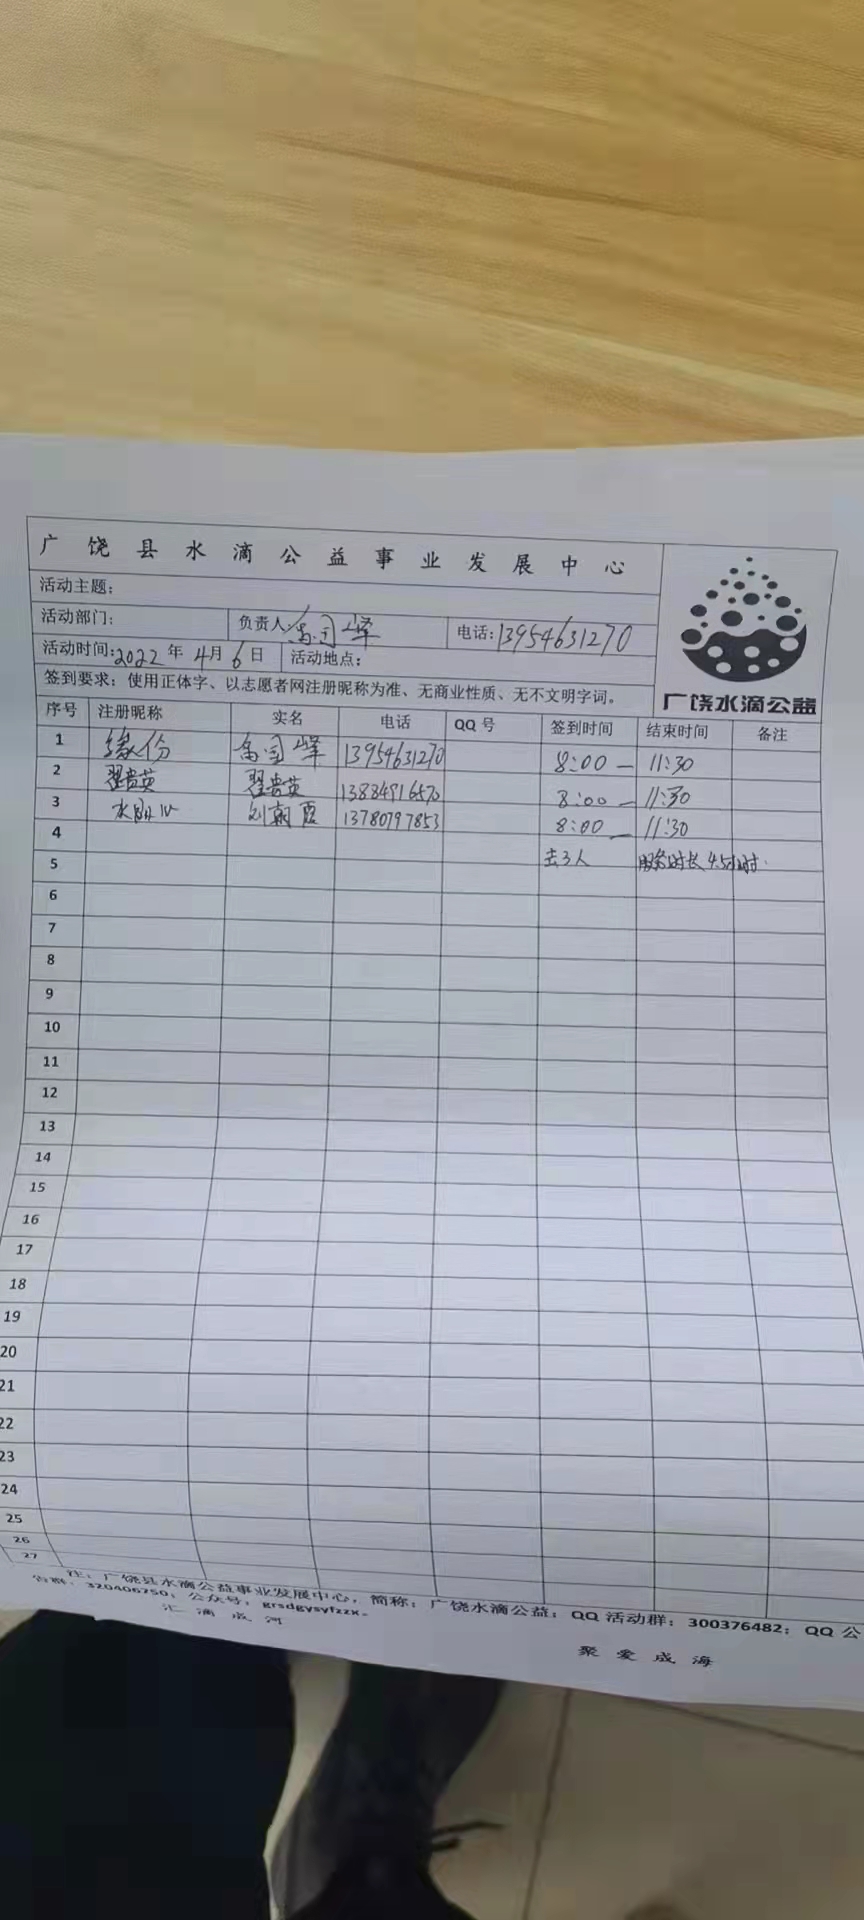 广饶县水滴公益事业发展中心
活动主题：
活动部门： 负责人 国峰 电话：13954631270
活动时间：2022年4月6日 活动地点：
签到要求：使用正体字、以志愿者网注册昵称为准、无商业性质、无不文明字词。
广饶水滴公益
序号 注册昵称 实名 电话 QQ号 签到时间 结束时间 备注
1 缘份 国峰 13954631270 8:00 — 11:30
2 翟贵英 翟贵英 13884916570 8:00 — 11:30
3 水 刘朝霞 13780797853 8:00 — 11:30
4
5 3人 服务时长4.5小时
6
7
8
9
10
11
12
13
14
15
16
17
18
19
20
21
22
23
24
25
26
27
注：广饶县水滴公益事业发展中心，简称：广饶水滴公益；QQ活动群：300376482；QQ公
告群：320406750；公众号：grsdgysyfzzx。
汇滴成河
聚爱成海